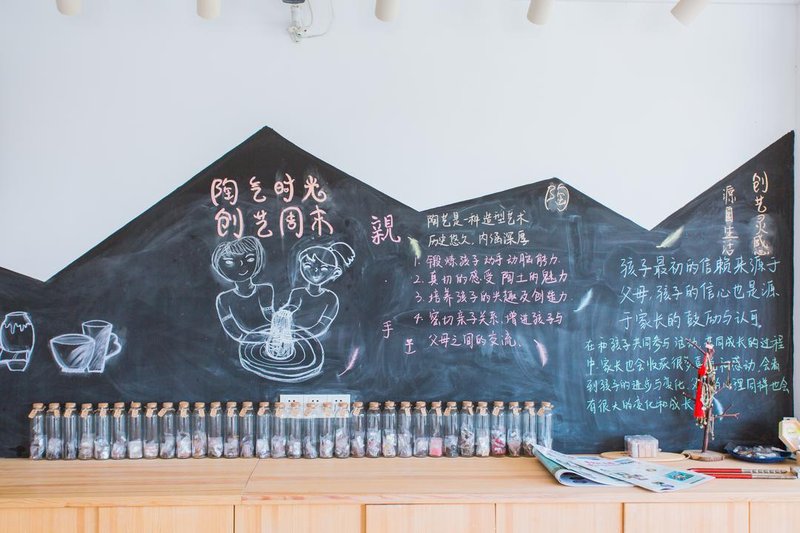 陶气时光
创艺周末
親
手
陶
陶艺是一种造型艺术
历史悠久，内涵深厚
1. 锻炼孩子动手动脑能力
2. 真切的感受 陶土的魅力
3. 培养孩子的兴趣及创造力
4. 密切亲子关系，增进孩子与
父母之间的交流。
创艺灵感
源自生活
孩子最初的信赖来源于
父母，孩子的信心也是源
于家长的鼓励与认可。
在和孩子共同参与活动，共同成长的过程
中，家长也会收获很多 感动，会看
到孩子的进步与变化， 心理同样也会
有很大的变化和成长